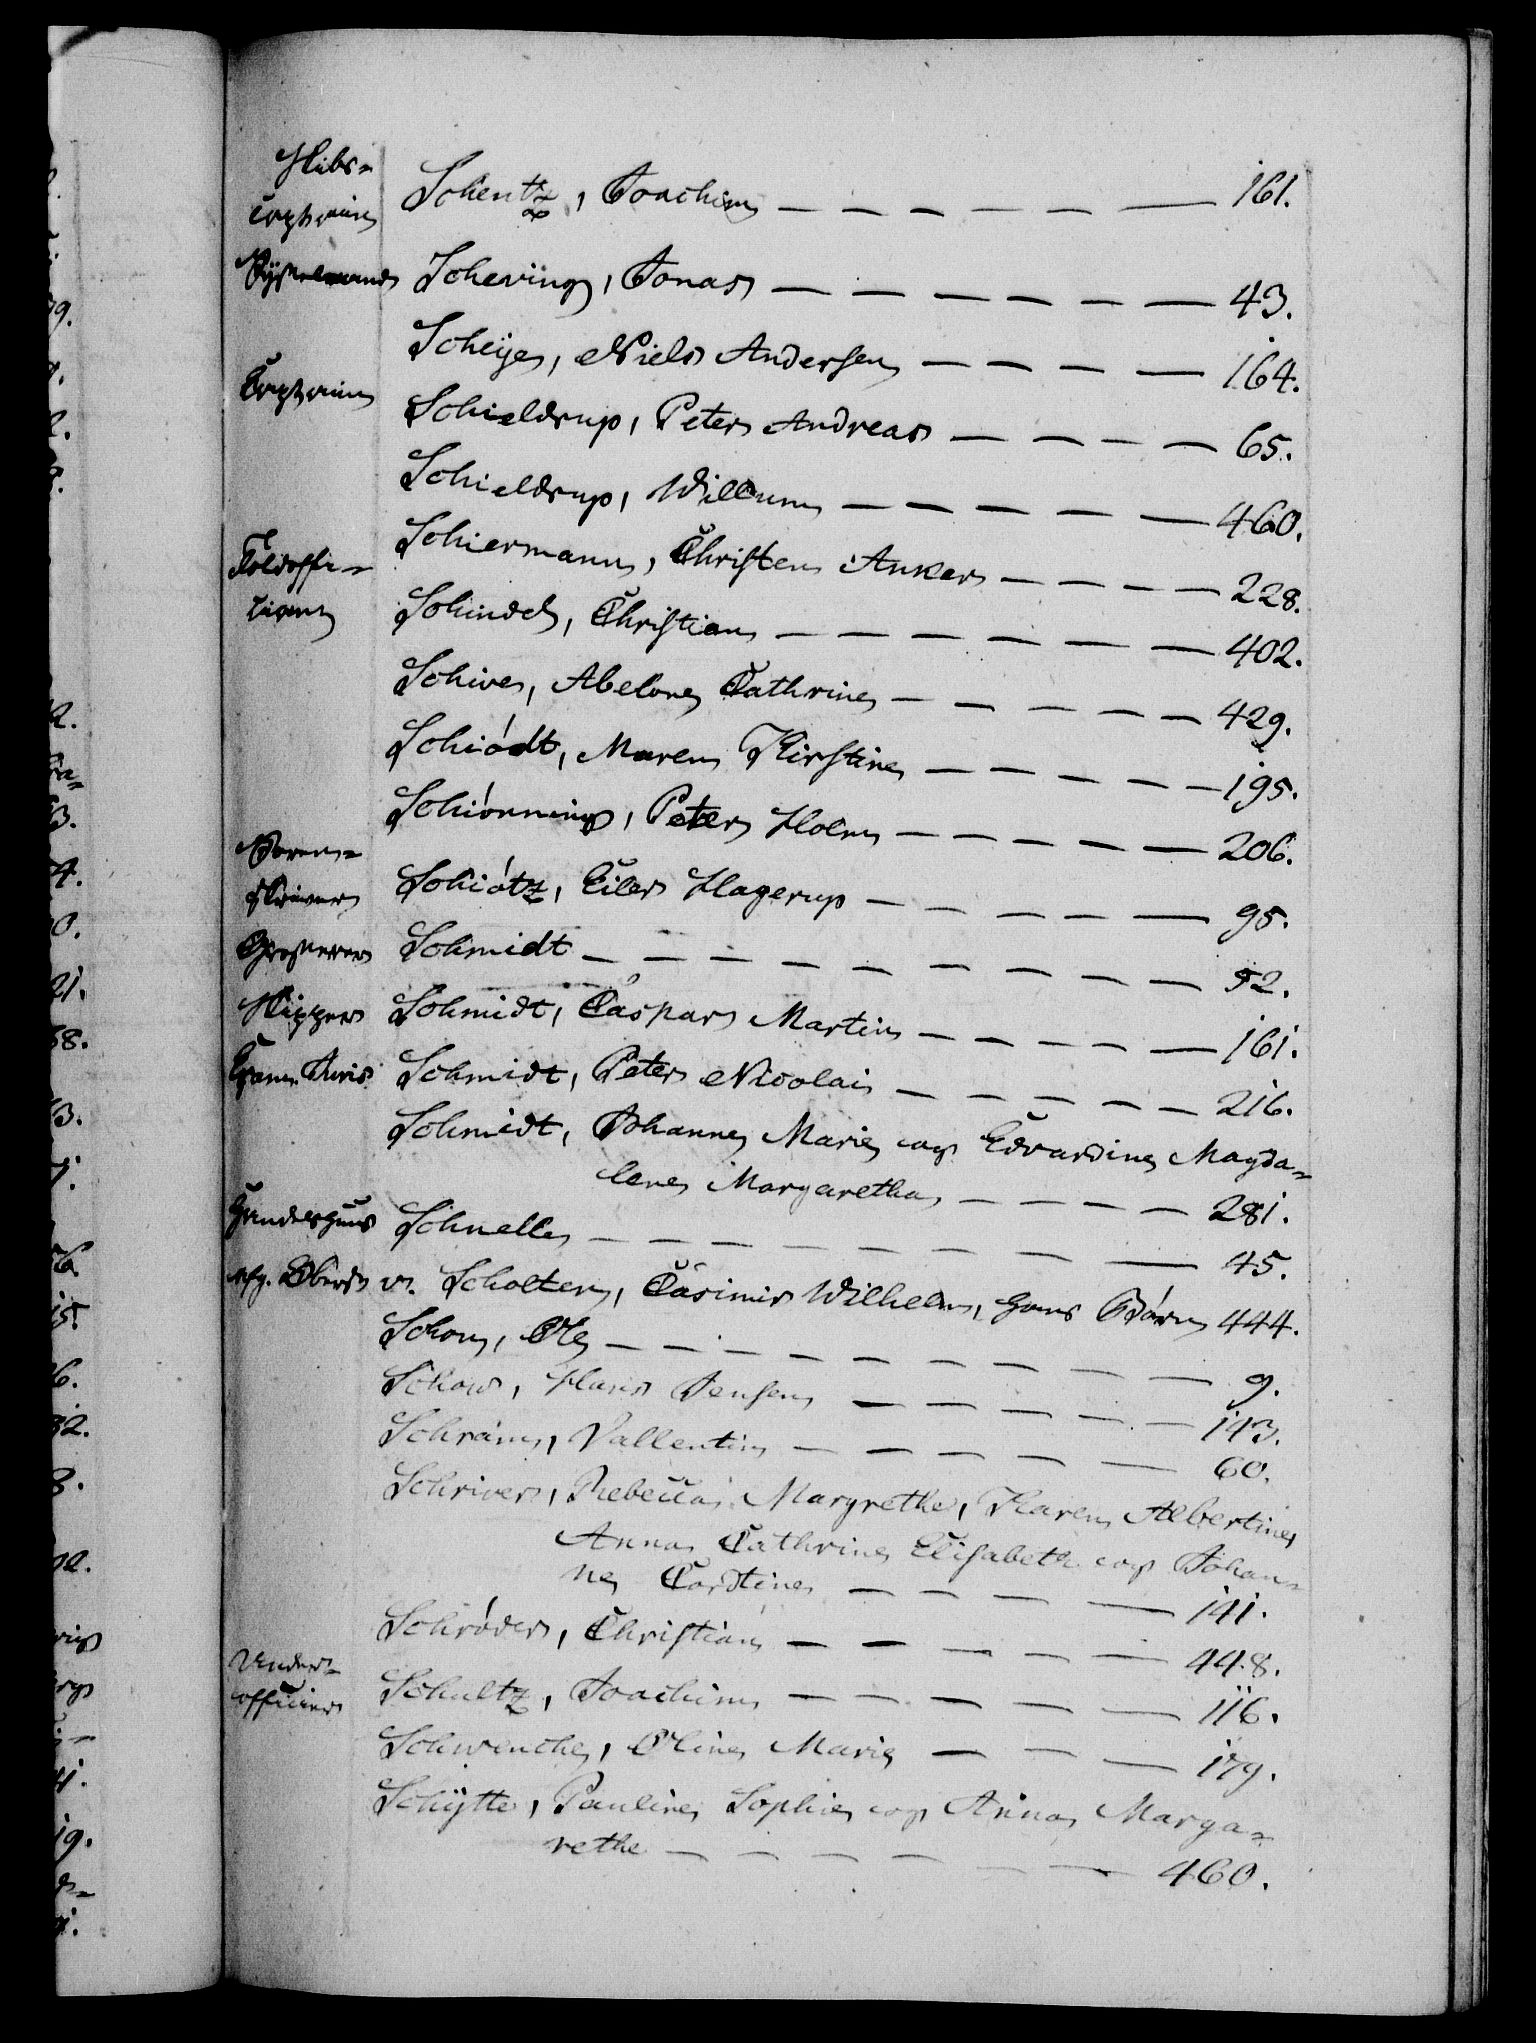 Skibs-
captain Schentz, Joachim — — — — — — 161.
Sÿsselmand Scheving, Jonas — — — — — — 43.
Scheÿe, Niels Andersen — — — — 164.
Captain Schieldrup, Peter Andreas — — — — 65.
Schieldrup, Willum — — — — — 460.
Schiermann, Christen Anker — — — — 228.
Toldoffi-
ciant Schindel, Christian — — — — — — 402.
Schive, Abelone Cathrine — — — — — 429.
Schiødt, Maren Kirstine — — — — — 195.
Schiønning, Peter Holm — — — — — 206.
Soren-
skriver Schiøtz, Eiler Hagerup — — — — — 95.
Grosserer Schmidt — — — — — — — — — 52.
Skipper Schmidt, Caspar Martin — — — — — 161.
Exam. Juris Schmidt, Peter Nicolai — — — — — 216.
Schmidt, Johanne Marie og Edvardine Magda-
lene Margaretha — — — — 281.
Handelshuus Schnelle — — — — — — — — 45.
afg. Oberst v. Scholten, Casimir Wilhelm, hans Børn 444.
Schou, Ole — — — — — — — — — 9.
Schow, Hans Jensen — — — — — 143.
Schram, Vallentin — — — — — 60.
Schriver, Rebecca Margrethe, Karen Albertine
Anna Cathrine Elisabeth og Johan-
ne Cordtine — — — — 141.
Schrøder, Christian — — — — — 448.
Under-
officier Schultz, Joachim — — — — — 116.
Schwencke, Oline Marie — — — — 179.
Schÿtte, Pauline Sophie og Anna Marga-
rethe — — — — — — 460.